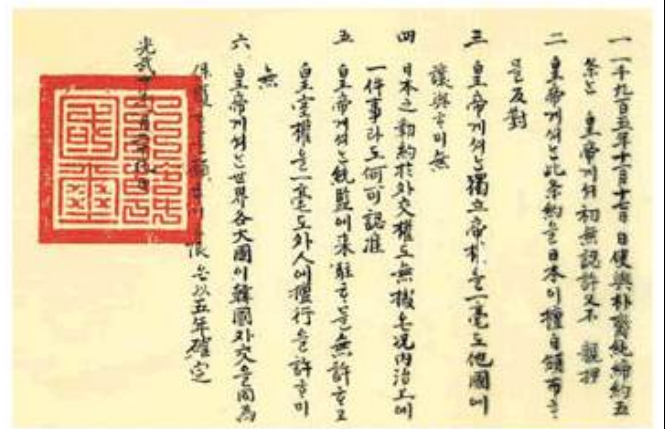 一 一千九百五年十一月十七日 日使與朴齊純締約五
条는 皇帝게셔 初無認許又不 親押
二 皇帝게셔는 此条約을 日本이 擅自頒布ᄒᆞ
믈 反對
三 皇帝게셔는 獨立帝權을 一毫도 他國에
讓與ᄒᆞ미 無
四 日本之勒約於外交權도 無據온 况內治上에
一件事라도 何可認准
五 皇帝게셔는 統監에 來駐ᄒᆞ믈 無許ᄒᆞ고
皇室權을 一毫도 外人에 擅行을 許ᄒᆞ미
無
六 皇帝게셔는 世界各大國이 韓國外交을 同爲
保護 願 限은 以五年確定
光武 年一月 日